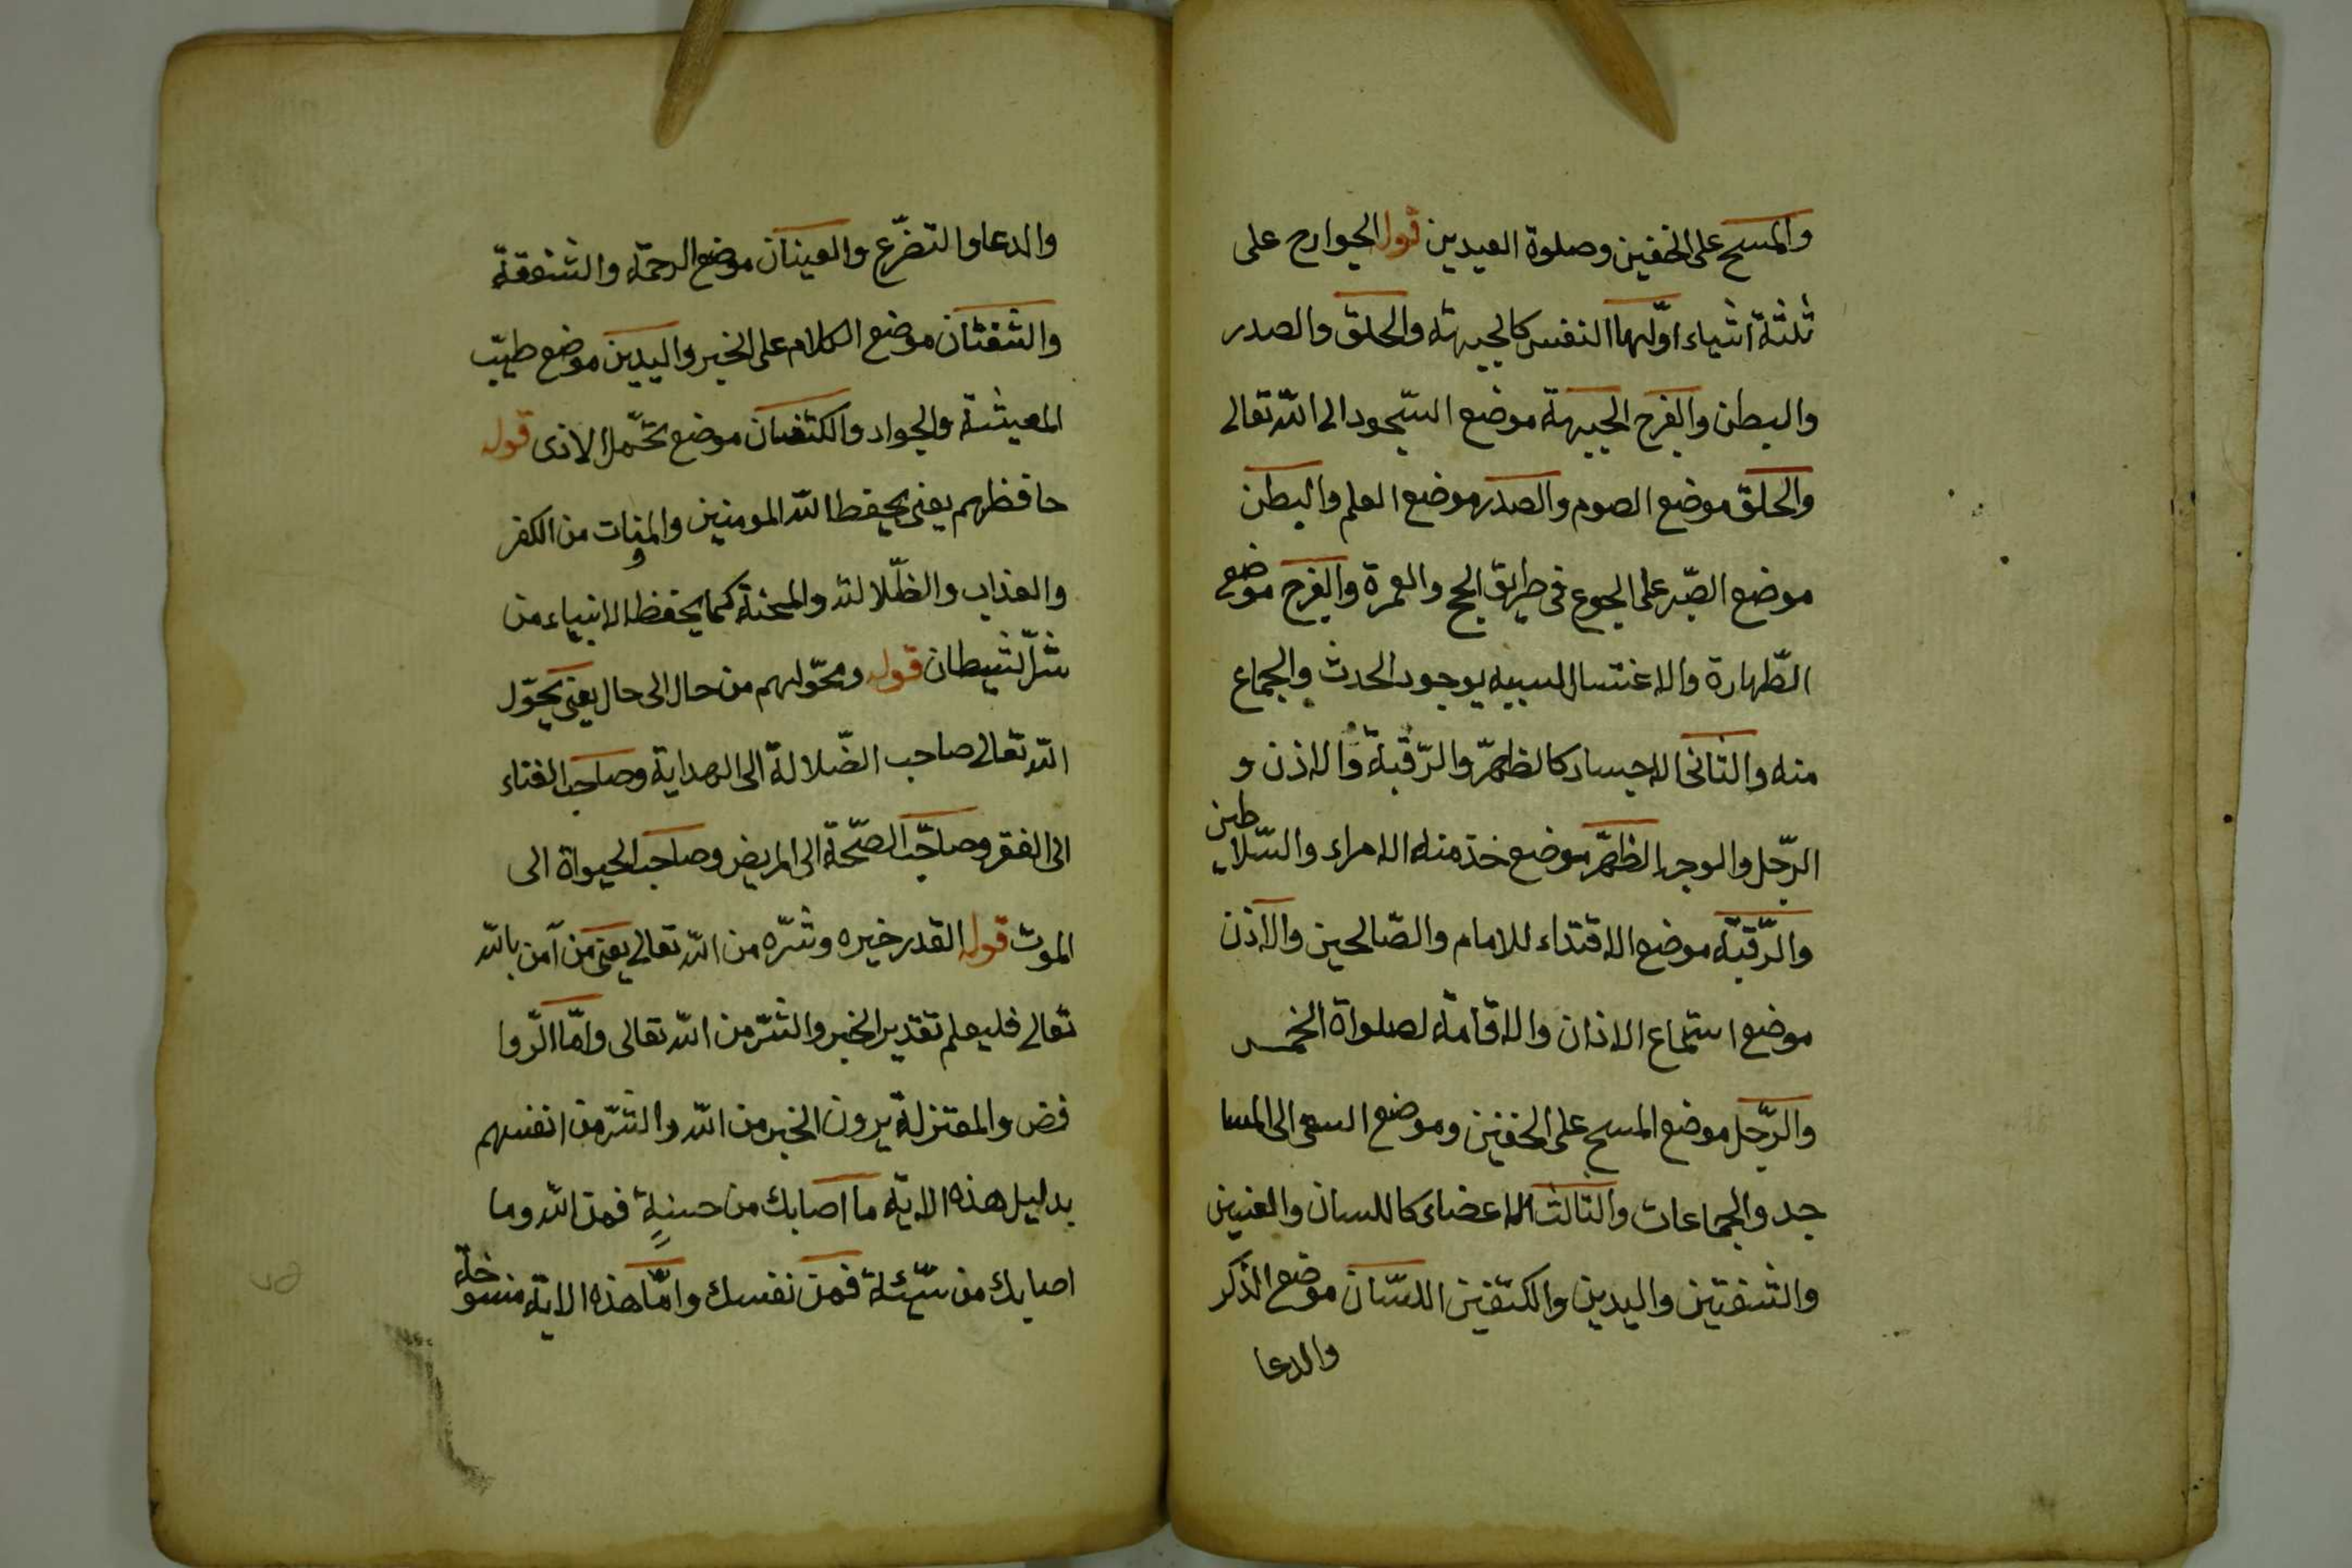 والمسح على الخفين وصلوة العيدين قوله الجوارح على
ثلثة اشياء اوّلها النفس كالجبهة والحلق والصدر
والبطن والفرج الجبهة موضع السّجود الى اللّه تعالى
والحلق موضع الصوم والصدر موضع العلم والبطن
موضع الصّبر على الجوع فى طريق الحج والعمرة والفرج موضع
الطّهارة والاغتسال لسببه بوجود الحدث والجماع
منه والثانى الاجساد كالظهر والرّقبة والاذن و
الرّجل والوجه الظهر موضع خدمته الامراء والسّلاطين
والرّقبة موضع الاقتداء للامام والصّالحين والاذن
موضع استماع الاذان والاقامة لصلواة الخمس
والرّجل موضع المسح على الخفين وموضع السعى الى المسا
جد والجماعات والثالث الاعضاء كاللسان والعنين
والشفتين واليدين والكتفين اللسّان موضع الذكر
والدعا
والدعا والتضرّع والعينان موضع الرحمة والشفقة
والشفتان موضع الكلام على الخير واليدين موضع طيّب
المعيشة والجواد والكتفان موضع تحمّل الاذى قوله
حافظهم يعنى يحفظ اللّه المومنين والمومنات من الكفر
والعذاب والظّلالة والمحنة كما يحفظ الانبياء من
شرّ الشيطان قوله ومحوّلهم من حال الى حال يعنى يحوّل
اللّه تعالى صاحب الضّلالة الى الهداية وصاحب الغناء
الى الفقر وصاحب الصّحّة الى المريض وصاحب الحيواة الى
الموت قوله القدر خيره وشرّه من اللّه تعالى يعنى من آمن باللّه
تعالى فليعلم تقدير الخير والشرّ من اللّه تعالى وامّا الرّوا
فض والمعتزلة يرون الخير من اللّه والشرّ من انفسهم
بدليل هذه الاية ما اصابك من حسنةٍ فمن اللّه وما
اصابك من سيّئة فمن نفسك وامّا هذه الاية منسوخة